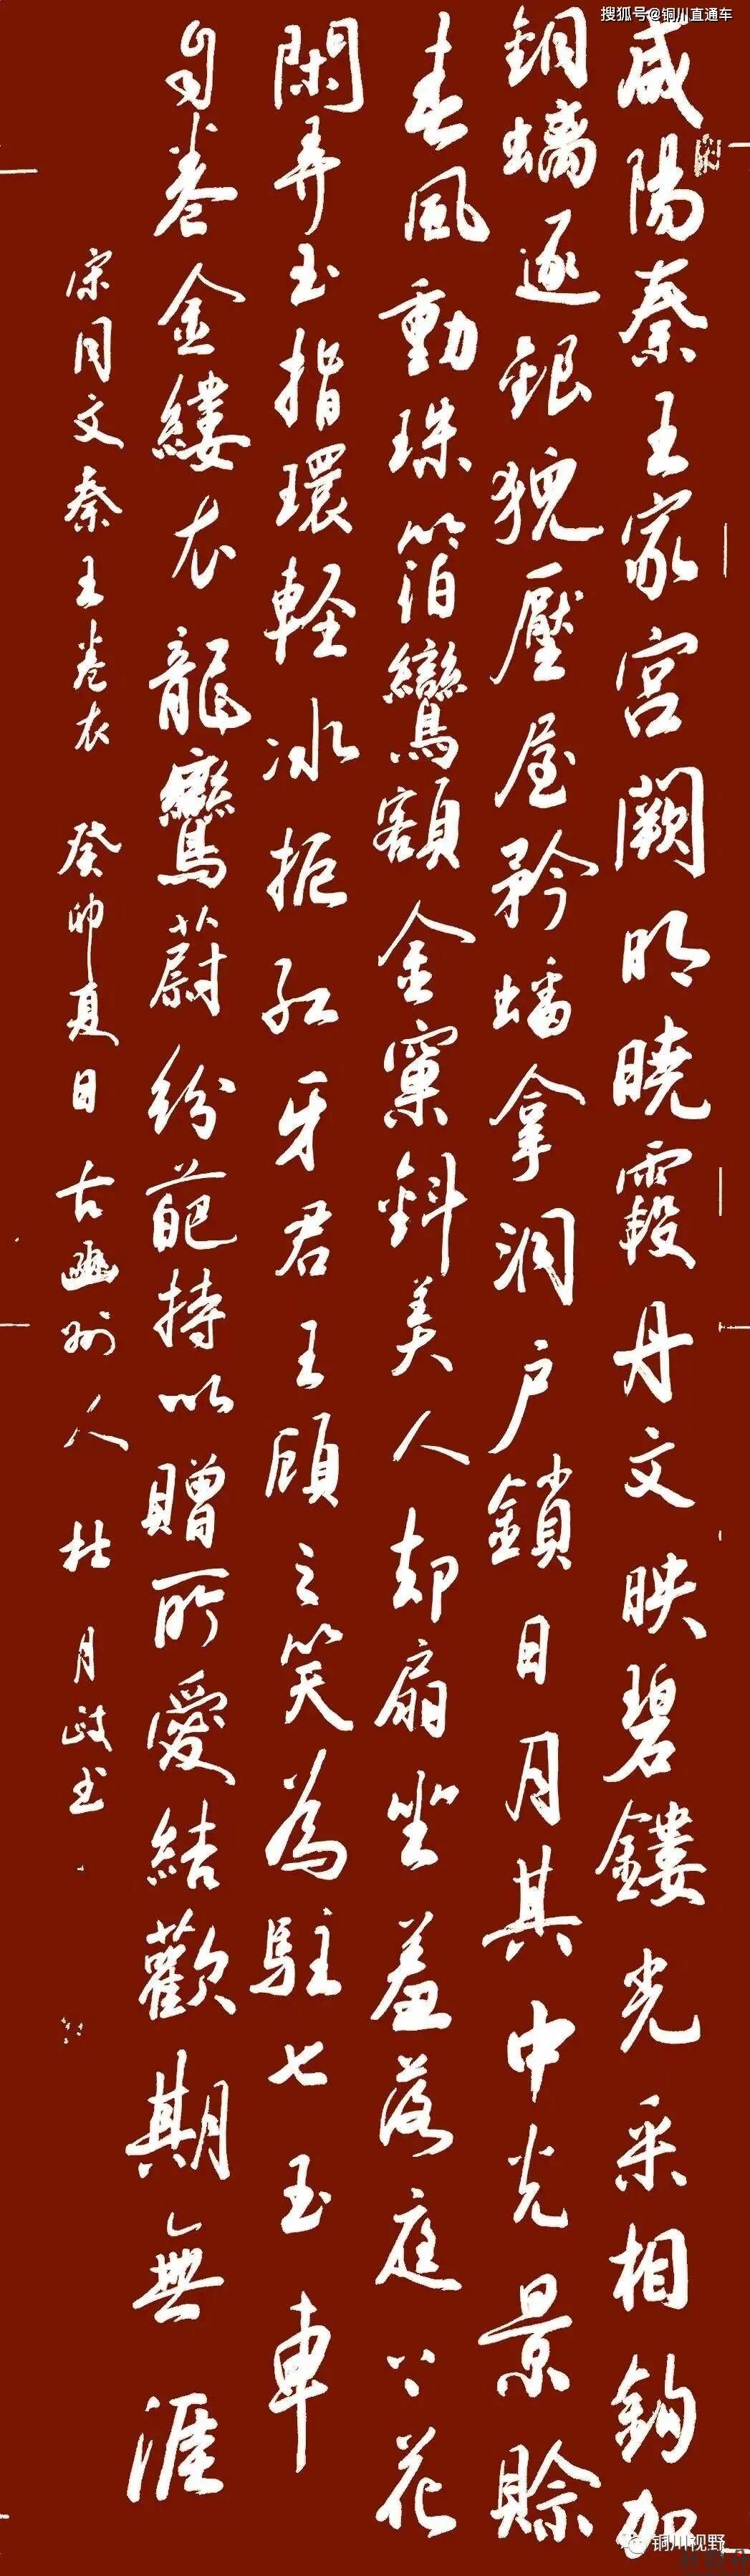 搜狐号@铜川直通车
咸陽秦王家宮闕明曉霞丹文映碧鏤光采相鉤加
銅螭逐銀猊壓屋矜蟠拿洞户鎖日月其中光景賒
春風動珠箔鸞額金窠斜美人却扇坐羞落庭下花
閑弄玉指環輕冰扼紅牙君王顧之笑為駐七玉車
自卷金縷衣龍鸞蔚紛葩持以贈所愛結歡期無涯
宋同文秦王卷衣 癸卯夏日古豳州人 杜月书
铜川视野